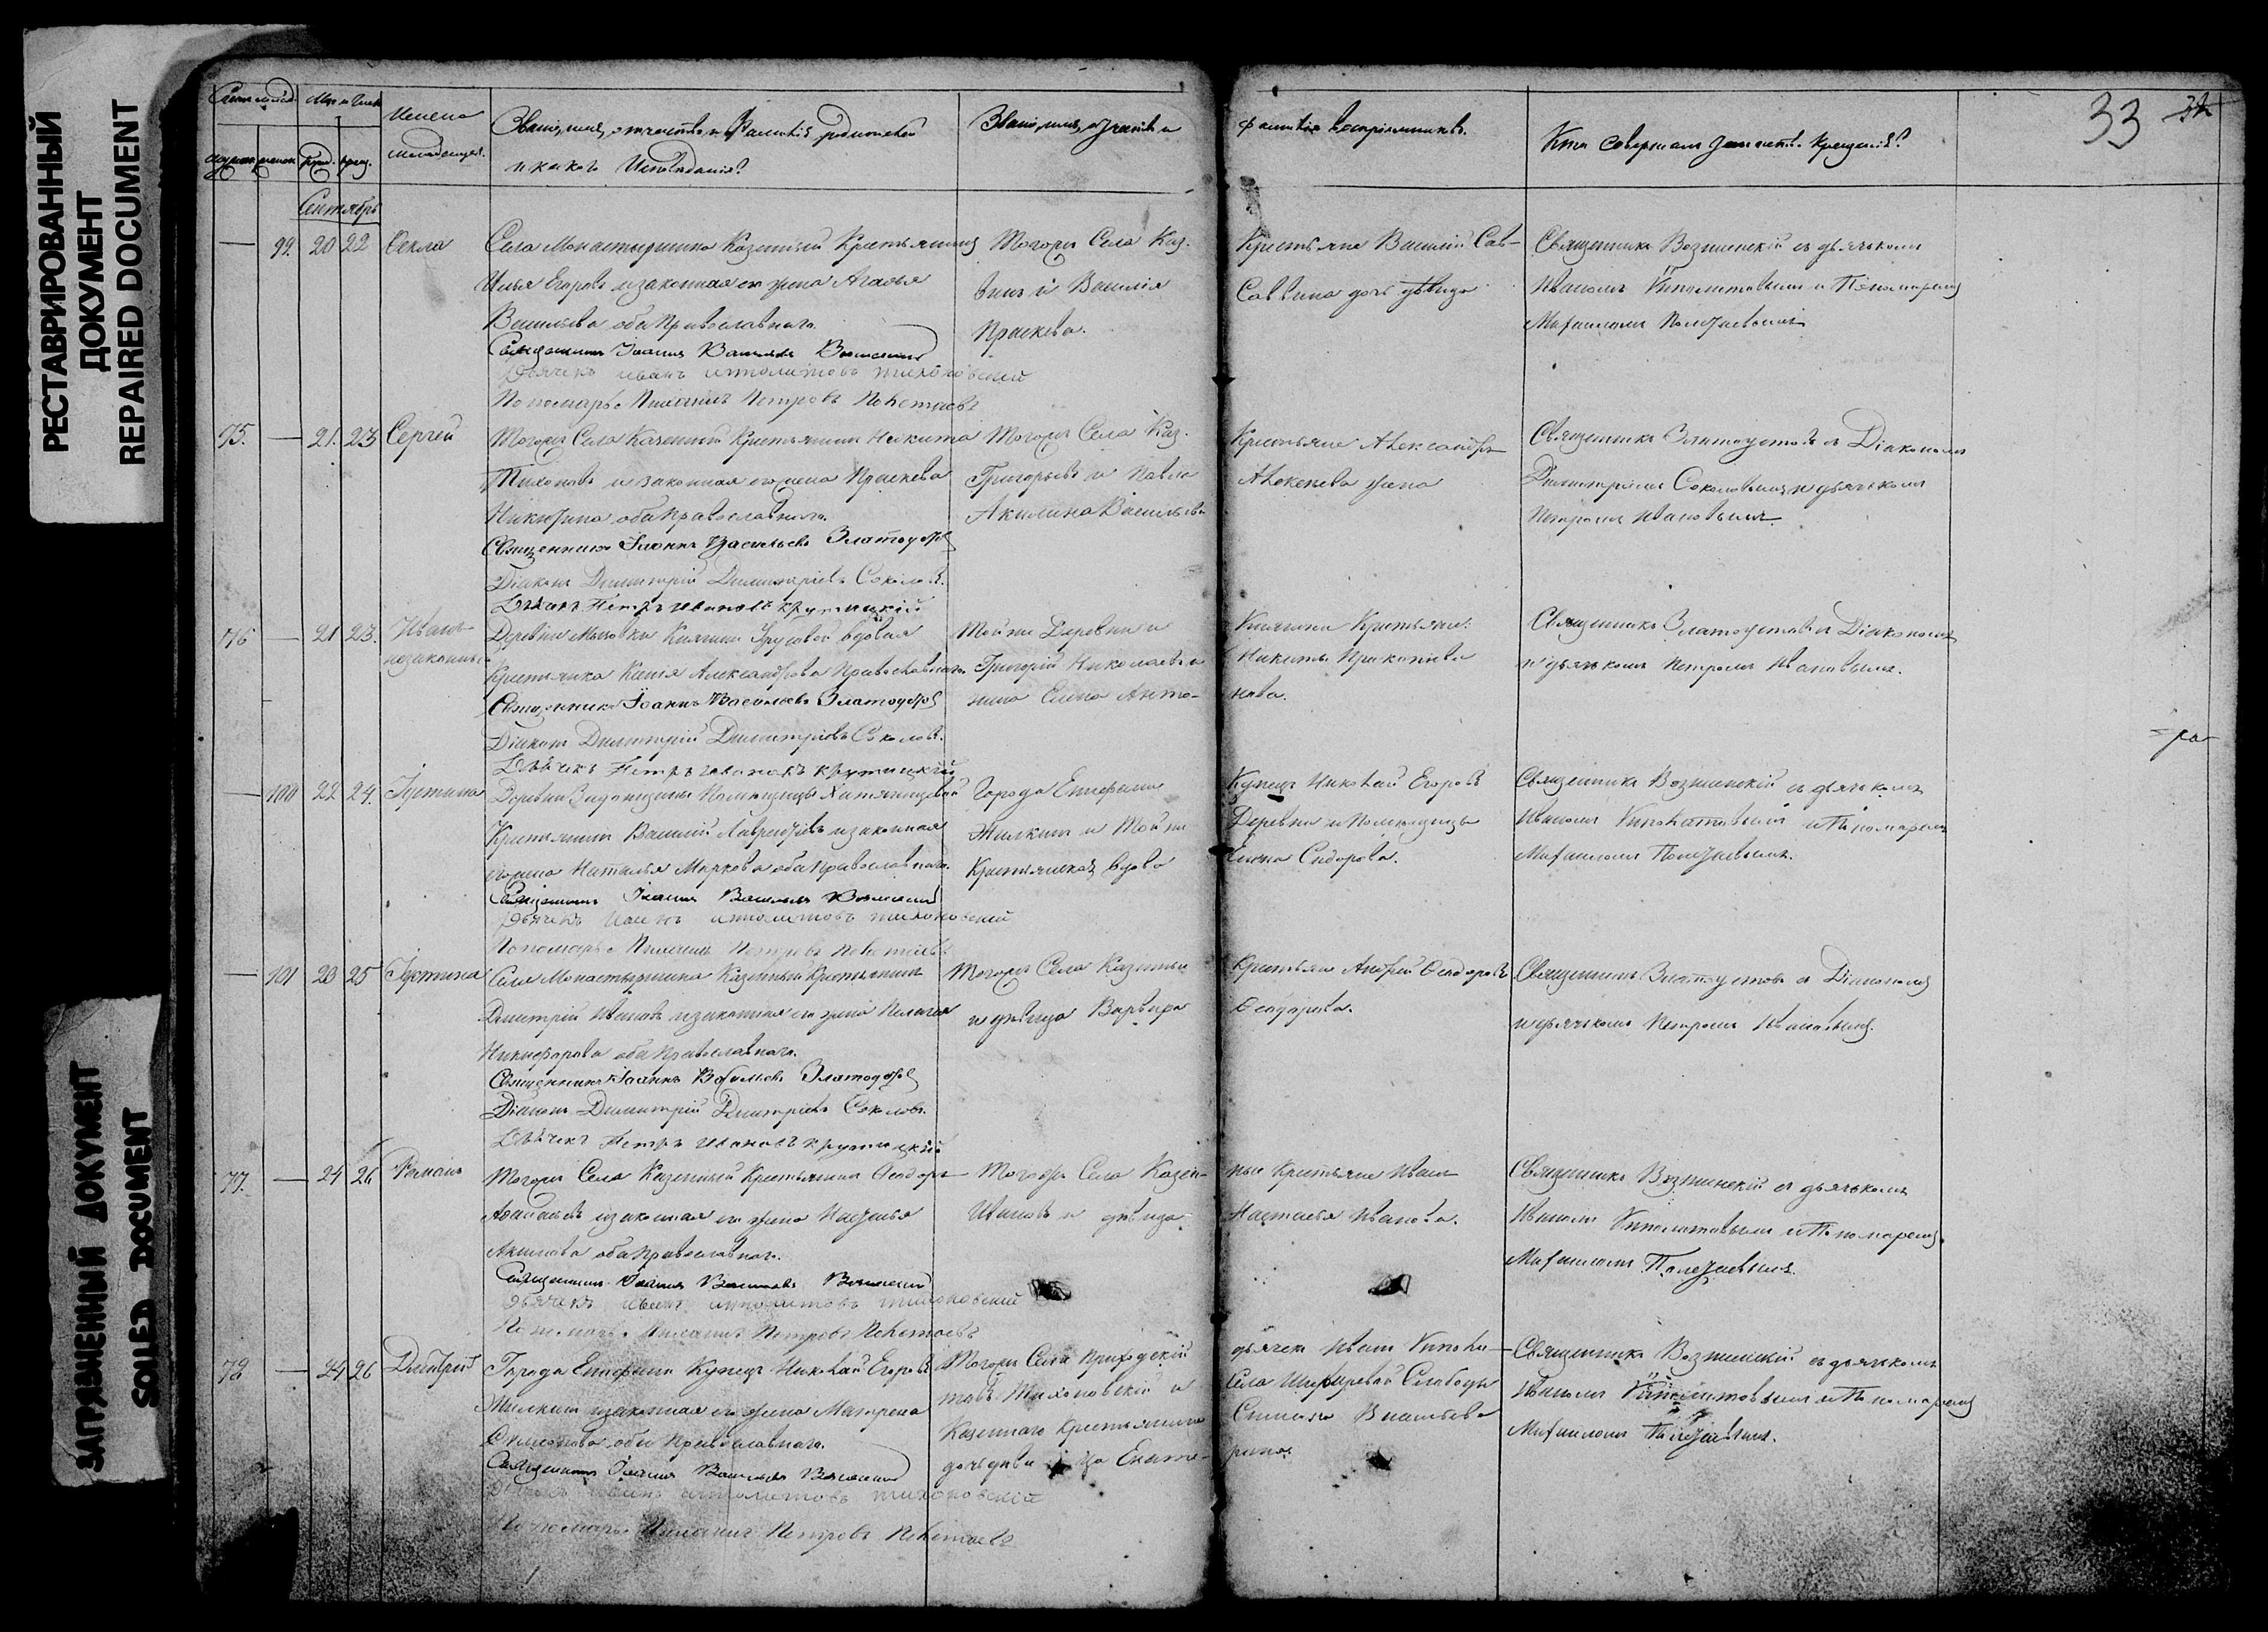 РЕСТАВРИРОВАННЫЙ
ДОКУМЕНТ
REPAIRED DOCUMENT
ЗАГРЯЗНЕННЫЙ ДОКУМЕНТ
SOILED DOCUMENT
33
Имена
Званіе, имя, отчество и фамилія родителей
и какого Исповѣданія?
Званіе, имя, отчество и
фамилія воспріемниковъ.
Кто совершалъ таинство Крещенія?
Сентябрь
99. 20 22 Ѳекла
Села Монастырщина Казенный Крестьянинъ
Илья Егоровъ и законная его жена Агаѳья
Васильева оба Православнаго.
Священникъ Іоаннъ Васильевъ
Дьячекъ иванъ ипполитовъ тихоновский
Пономарь Михаилъ Петровъ Полетаевъ
Тогожъ Села Каз.
Прасковья.
Крестьяне Василій Сав-
Саввина дочь дѣвица
Священникъ Вознесенскій съ дьячкомъ
Иваномъ Ипполитовымъ и Пономаремъ
Михаиломъ Полетаевымъ
75. — 21. 23 Сергей
Тогожъ Села Казенный Крестьянинъ Никита
Тихоновъ и законная его жена Прасковья
Никитина оба Православнаго.
Священникъ Іоаннъ Васильевъ Златоустовъ
Діаконъ Димитрій Димитріевъ Соколовъ.
Дьячекъ Петръ ивановъ крутицкій
Тогожъ Села Каз.
Григорьевъ и Павла
Акилина Васильева
Крестьяне Александръ
Алексеева жена
Священникъ Златоустовъ съ Діакономъ
Димитріемъ Соколовымъ и дьячкомъ
Петромъ Ивановымъ.
76 — 21 23. Иванъ
незаконный
Деревни Княгини вдовая
Крестьянка Ксенія Александрова Православнаго.
Священникъ Іоаннъ Васильевъ Златоустовъ
Діаконъ Димитрій Димитріевъ Соколовъ.
Дьячекъ Петръ ивановъ крутицкій
Тойже Деревни и
Григорій Николаевъ и
жена Елена Анто-
Княгини Крестьяне:
Никиты
нова.
Священникъ Златоустовъ съ Діакономъ
и дьячкомъ Петромъ Ивановымъ.
— 100 22 24. Іустина
Деревни Помещицы
Крестьянинъ Василій и законная
его жена Наталья Маркова оба Православнаго.
Священникъ Іоаннъ Васильевъ
Дьячекъ Иванъ ипполитовъ тихоновский
Пономарь Михаилъ Петровъ Полетаевъ
Города Епифани
Жилкинъ и Тойже
Крестьянская вдова
Купецъ Николай Егоровъ
Деревни и Помещицы
Сидорова.
Священникъ Вознесенскій съ дьячкомъ
Иваномъ Ипполитовымъ и Пономаремъ
Михаиломъ Полетаевымъ.
— 101 23 25 Іустина
Села Монастырщина Казенный Крестьянинъ
Димитрій Ивановъ и законная его жена Пелагея
Никифорова оба Православнаго.
Священникъ Іоаннъ Васильевъ Златоустовъ
Діаконъ Димитрій Димитріевъ Соколовъ.
Дьячекъ Петръ ивановъ крутицкій
Тогожъ Села Казенные
и дѣвица Варвара
Крестьяне Андрей Ѳеодоровъ
Ѳеодорова.
Священникъ Златоустовъ съ Діакономъ
и дьячкомъ Петромъ Ивановымъ.
77. — 24 26 Романъ
Тогожъ Села Казенный Крестьянинъ Ѳеодоръ
Аѳанасьевъ и законная его жена Наталья
Акимова оба Православнаго.
Священникъ Іоаннъ Васильевъ
Дьячекъ Иванъ ипполитовъ тихоновский
Пономарь Михаилъ Петровъ Полетаевъ
Тогожъ Села Казен-
Ивановъ и дѣвица
ные Крестьяне Иванъ
Настасья Иванова.
Священникъ Вознесенскій съ дьячкомъ
Иваномъ Ипполитовымъ и Пономаремъ
Михаиломъ Полетаевымъ.
78 — 24 26 Дмитрій
Города Епифани Купецъ Николай Егоровъ
Жилкинъ и законная его жена Матрена
Симонова оба Православнаго.
Священникъ Іоаннъ Васильевъ
иванъ ипполитовъ тихоновскій
Пономарь Михаилъ Петровъ Полетаевъ
Тогожъ Села Приходскій
товъ Тихоновскій и
Казеннаго Крестьянина
дочь дѣви ца Екате-
дьячекъ Иванъ Ипполи-
Села Слободы
рина.
Священникъ Вознесенскій съ дьячкомъ
Иваномъ Ипполитовымъ и Пономаремъ
Михаиломъ Полетаевымъ.